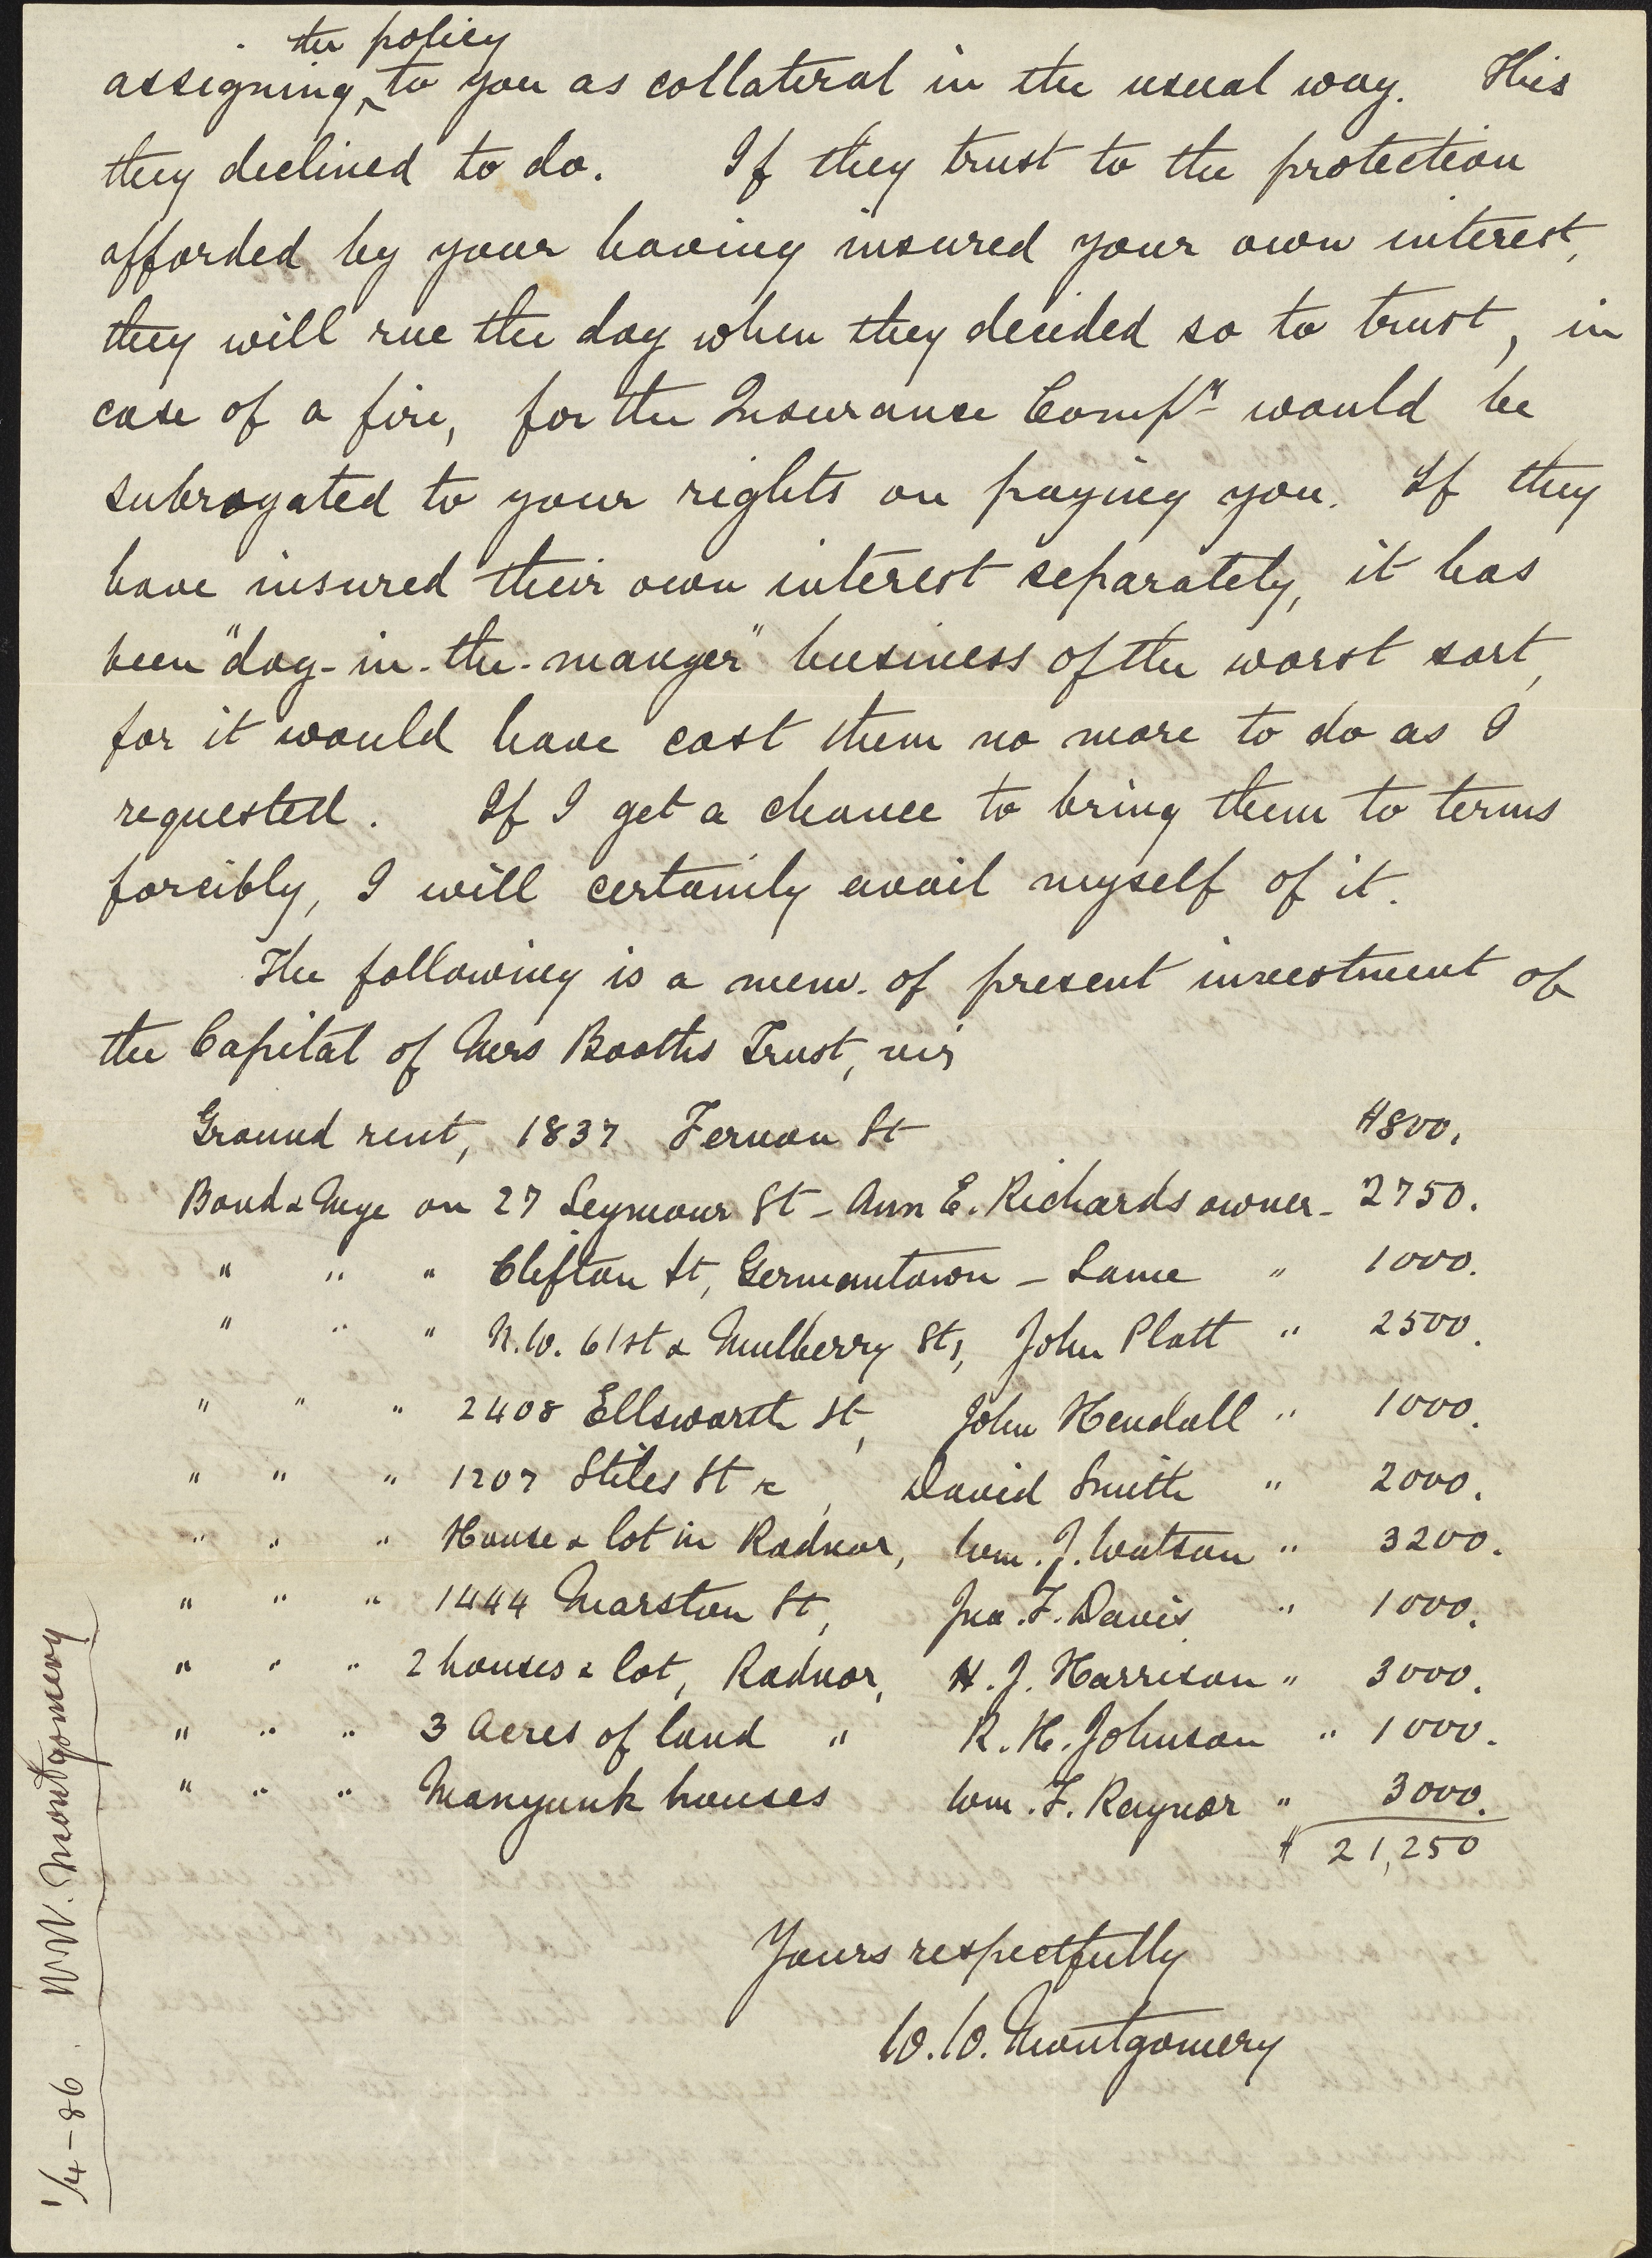 the policy
assigning ^ to you as collateral in the usual way. This
they declined to do. If they trust to the protection
afforded by your having insured your own interest,
they will rue the day when they decided so to trust, in
case of a fire, for the Insurance Compy would be
subrogated to your rights on paying you. If they
have insured their own interest separately, it has
been "dog-in-the-manger" business of the worst sort,
for it would have cost them no more to do as I
requested. If I get a chance to bring them to terms
forcibly, I will certainly avail myself of it.
The following is a mem. of present investment of
the Capital of Mrs Booths Trust, viz
Ground rent, 1837 Fernon St $800.
Bond & Mge on 27 Seymour St - Ann E. Richards owner - 2750.
" " " Clifton St, Germantown - Same " 1000.
" " " N.W. 61st & Mulberry Sts, John Platt " 2500.
" " " 2408 Ellsworth St, John Kendall " 1000.
" " " 1207 Stiles St &c, David Smith " 2000.
" " " House & lot in Radnor, Wm. J. Watson " 3200.
" " " 1444 Marston St, Jno. F. Davis " 1000.
" " " 2 houses & lot, Radnor, H. J. Harrison " 3000.
" " " 3 Acres of land " R. H. Johnson " 1000.
" " " Manyunk houses Wm. F. Raynor " 3000.
$ 21,250
Yours respectfully
W. W. Montgomery
1/4-86. W.W. Montgomery